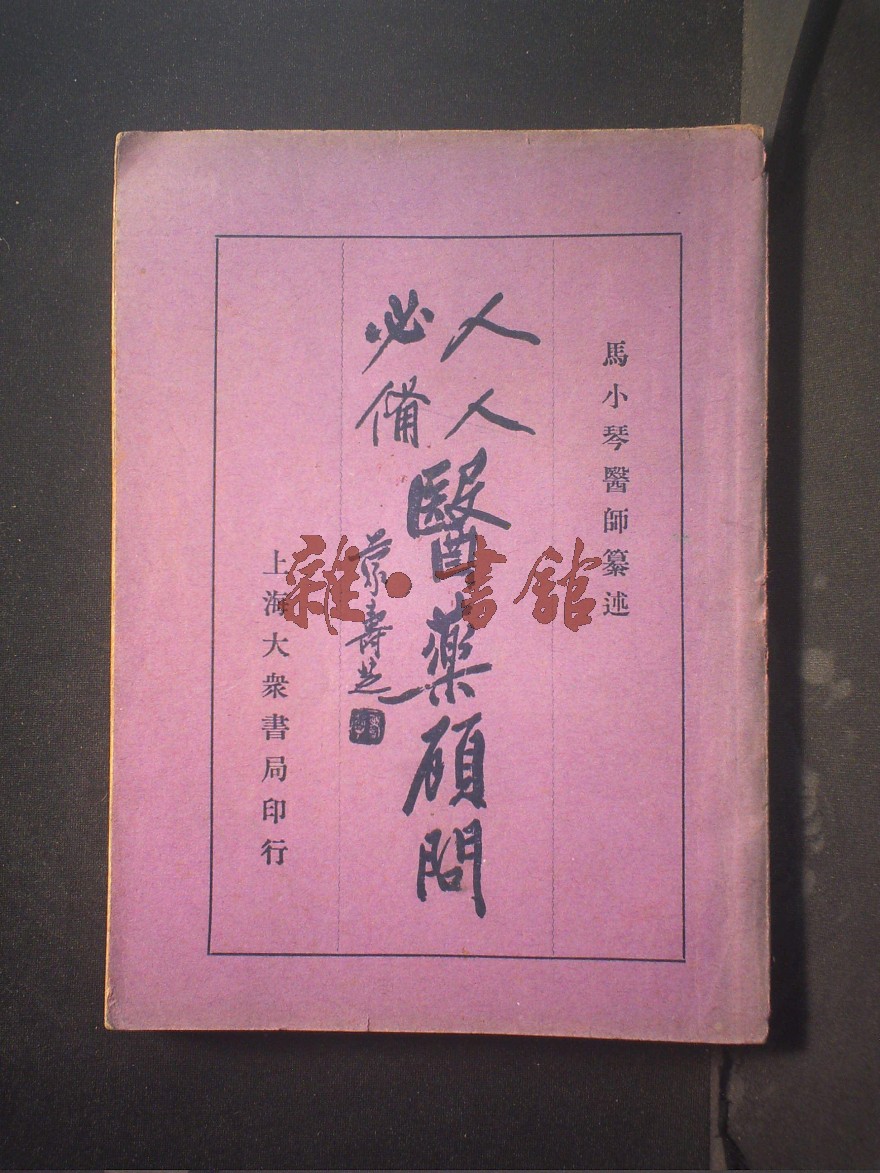 馬小琴醫師纂述
人人
必備
醫藥顧問
壽芝
上海大衆書局印行
雜·書館